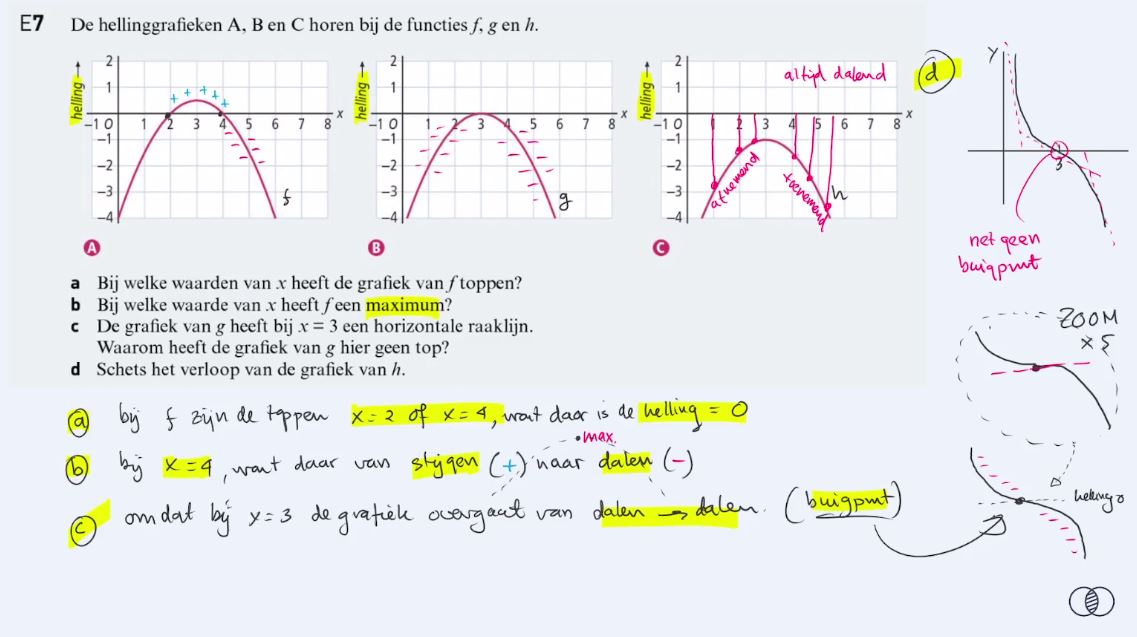 E7 De hellinggrafieken A, B en C horen bij de functies f, g en h.
helling → 2 1 -1 0 1 2 3 4 5 6 7 8 x -1 -2 -3 -4 f
+ + + + +
A
helling → 2 1 -1 0 1 2 3 4 5 6 7 8 x -1 -2 -3 -4 g
B
helling → 2 1 -1 0 1 2 3 4 5 6 7 8 x -1 -2 -3 -4 h
altijd dalend
afnemend
toenemend
C
d
y
3
net geen
buigpunt
a Bij welke waarden van x heeft de grafiek van f toppen?
b Bij welke waarde van x heeft f een maximum?
c De grafiek van g heeft bij x = 3 een horizontale raaklijn.
Waarom heeft de grafiek van g hier geen top?
d Schets het verloop van de grafiek van h.
ZOOM
x 5
a bij f zijn de toppen x = 2 of x = 4, want daar is de helling = 0
max.
b bij x = 4, want daar van stijgen (+) naar dalen (-)
c omdat bij x = 3 de grafiek overgaat van dalen → dalen. (buigpunt)
helling 0